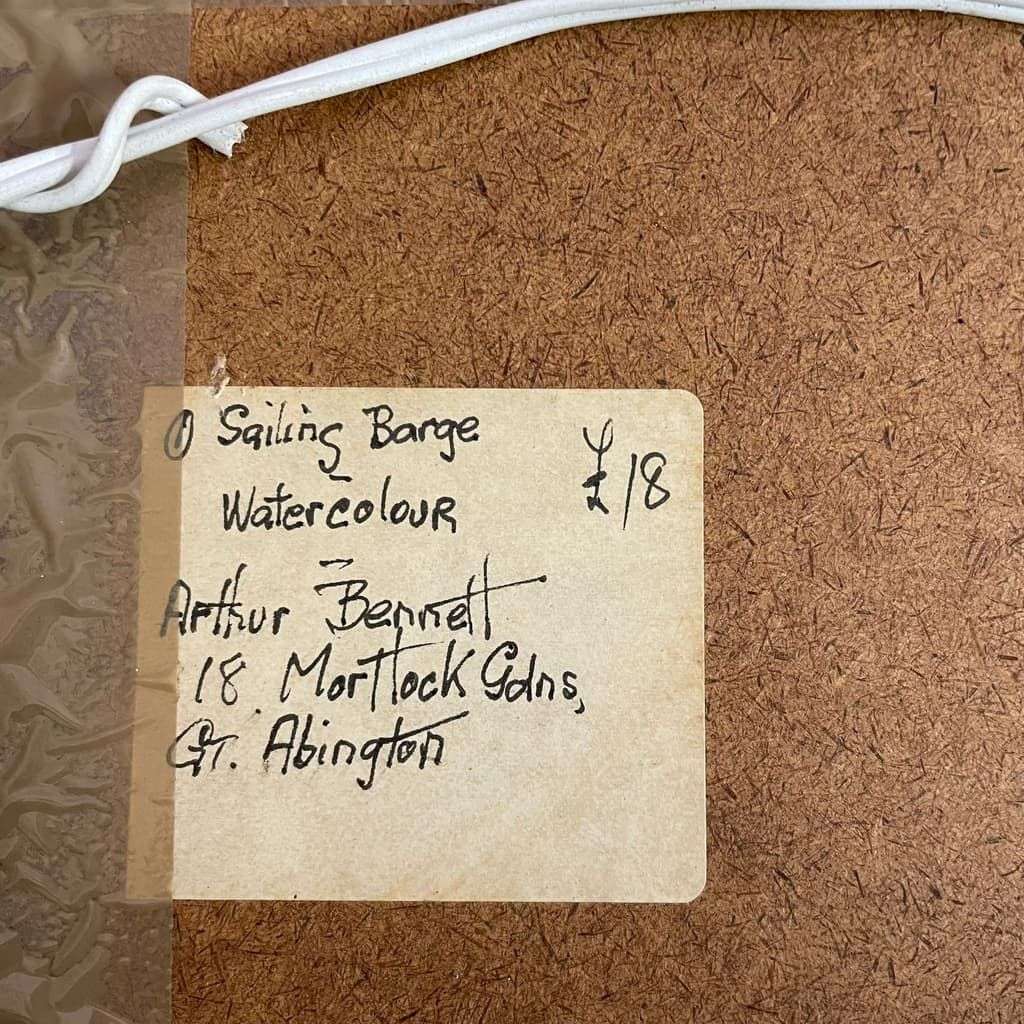 ① Sailing Barge
Watercolour
£18
Arthur Bennett
18 Mortlock Gdns,
Gt. Abington